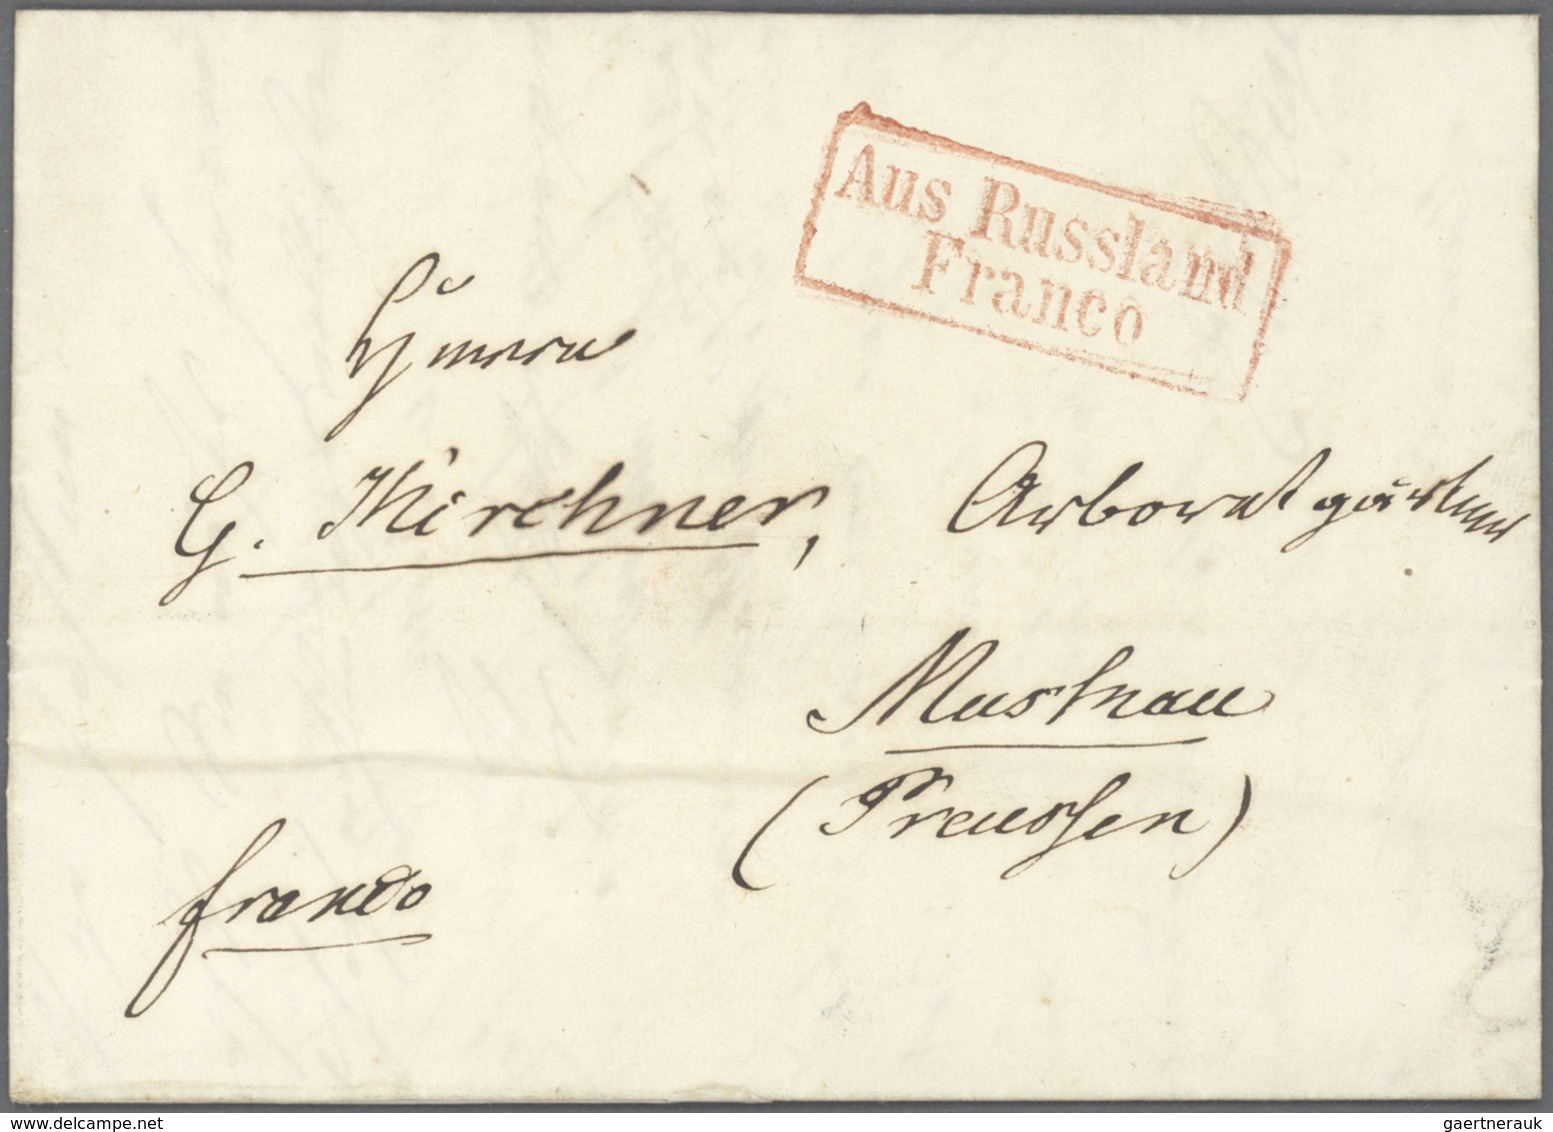 Aus Russland
Franco
Herrn
G. Kirchner, Arboretgärtner
Muskau
(Preussen)
franco
gaertnerauk